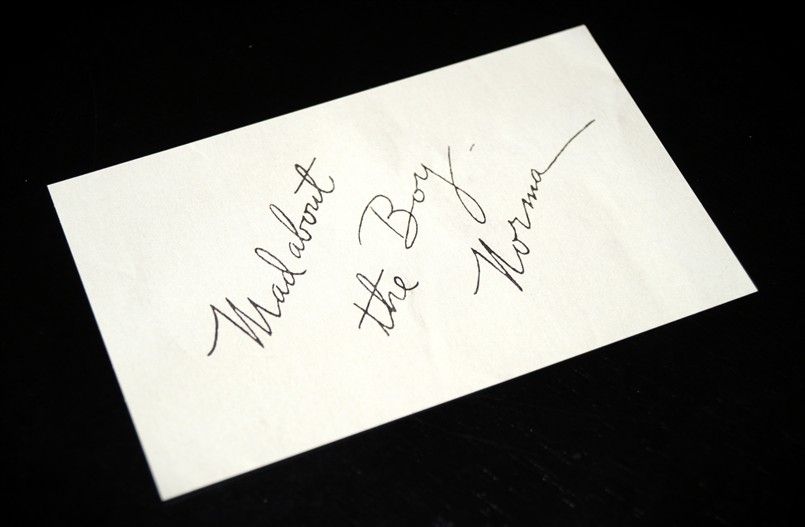 Mad about
the Boy.
Norma